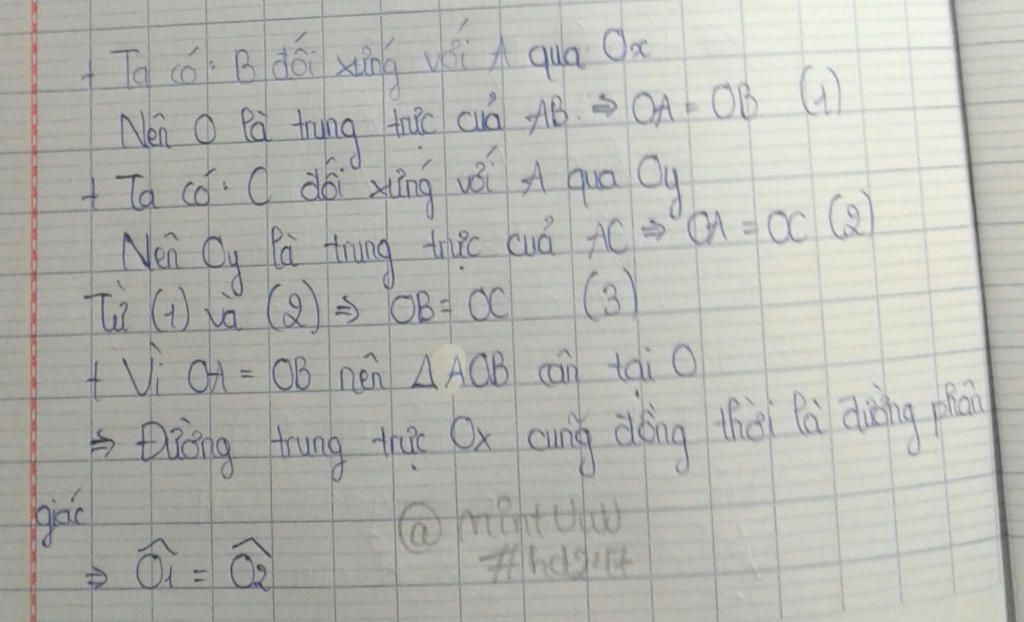 + Ta có: B đối xứng với A qua Ox
Nên O là trung trực của AB. ⇒ OA = OB (1)
+ Ta có: C đối xứng với A qua Oy
Nên Oy là trung trực của AC ⇒ OA = OC (2)
Từ (1) và (2) ⇒ OB = OC (3)
+ Vì OA = OB nên ΔAOB cân tại O
⇒ Đường trung trực Ox cũng đồng thời là đường phân
giác
⇒ Ô1 = Ô2
#hd247